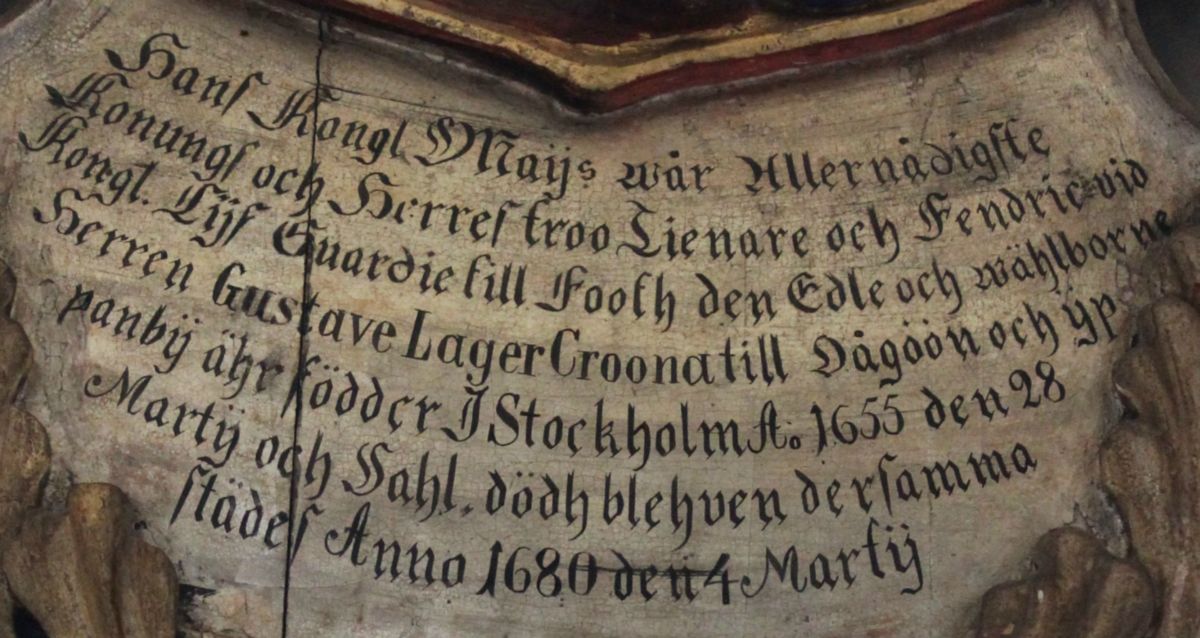 Hans Kongl Maÿs wår Allernådigste
Konungs och Herres troo Tienare och Fendric vid
Kongl. Lijfs Guardie till Footh den Edle och wählborne
Herren Gustave LagerCroona till Dågöön och ÿp
panbÿ ähr födder J Stockholm A:o 1655 den 28
Martÿ och Sahl. dödh blehven dersamma
städes Anno 1680 den 4 Martÿ